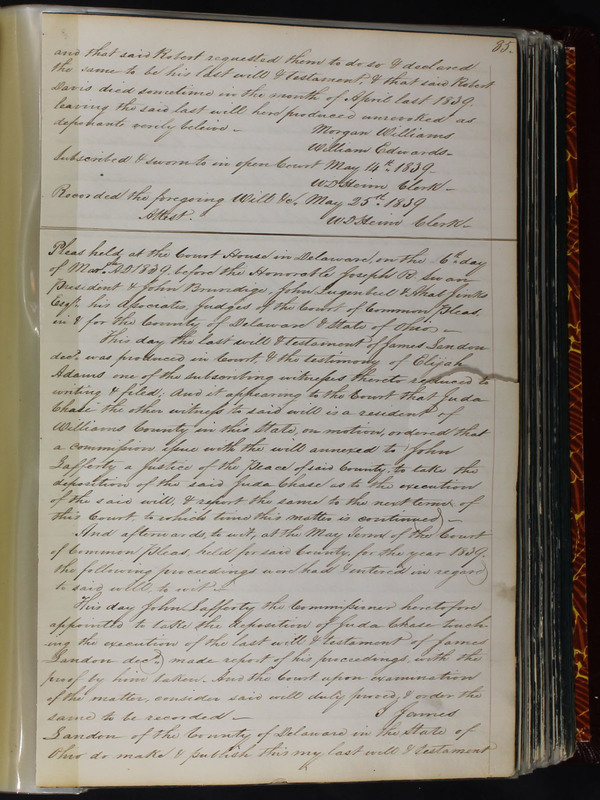 85.
and that said Robert requested them to do so & declared
the same to be his last will & testament, & that said Robert
Davis died sometime in the month of April last 1839.
leaving the said last will here produced unrevoked as
deponents verily believe –
Morgan Williams
William Edwards –
Subscribed & sworn to in open Court May 14th 1839
W. D. Heim Clerk –
Recorded the foregoing Will &c. May 25th 1839
Attest. W. D. Heim Clerk –
Pleas held at the Court House in Delaware, on the 6th day
of Mar. AD 1839, before the Honorable Joseph R. Swan
President & John Brundige, John Lugenbeel & Ahab Jinks
Esqrs. his Associates, Judges of the Court of Common Pleas,
in & for the County of Delaware & State of Ohio –
This day the last will & testament of James Landon
decd. was produced in Court, & the testimony of Elijah
Adams one of the subscribing witnesses thereto reduced to
writing & filed; And it appearing to the Court that Juda
Chase the other witness to said will is a resident of
Williams County in this State, on motion, ordered that
a commission issue with the will annexed to John
Lafferty a Justice of the Peace of said County, to take the
deposition of the said Juda Chase as to the execution
of the said will, & report the same to the next term of
this Court, to which time this matter is continued –
And afterwards, to wit, at the May Term of the Court
of Common Pleas, held for said County, for the year 1839,
the following proceedings were had & entered in regard
to said will, to wit –
This day John Lafferty the Commissioner heretofore
appointed to take the deposition of Juda Chase touch
ing the execution of the last will & testament of James
Landon decd., made report of his proceedings, with the
proof by him taken. And the Court upon examination
of the matter, consider said will duly proved, & order the
same to be recorded – I James
Landon of the County of Delaware in the State of
Ohio do make & publish this my last will & testament